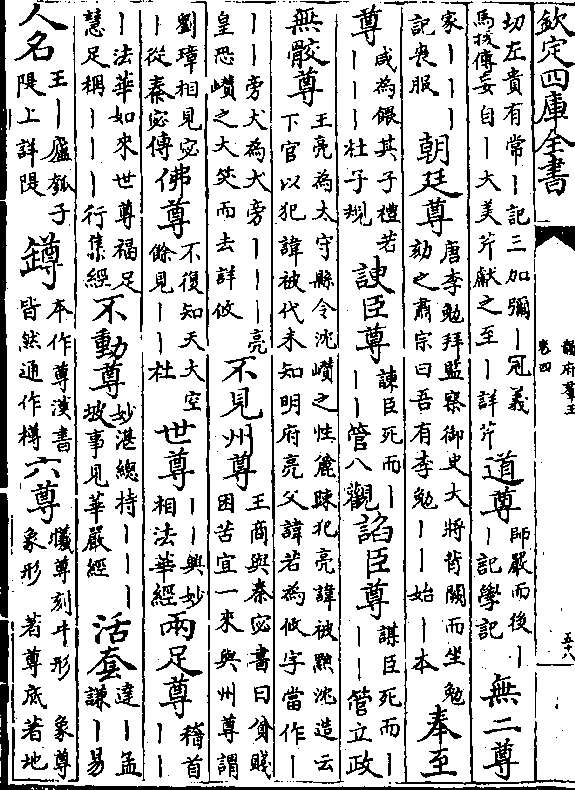 欽定四庫全書
韻府羣玉
卷四
五十八
切左貴有常丨記三加彌丨冠義
馬援傳妄自丨大美芹獻之至丨詳芹
道尊
師嚴而後丨
丨記學記
無二尊
家丨丨丨
記喪服
朝廷尊
唐李勉拜監察御史大將背闕而坐勉
劾之肅宗曰吾有李勉丨丨始丨本
奉至
尊
咸為餵其子禮若
丨丨丨丨杜子規
諛臣尊
諫臣死而丨
丨丨管八觀
諂臣尊
謀臣死而丨
丨丨管立政
無骹尊
王亮為太守縣令沈巑之性麄疎犯亮諱被黜沈造云
下官以犯諱被代未知明府亮父諱若為攸字當作丨
丨丨旁犬為犬旁丨丨丨亮
皇恐巑之大笑而去詳攸
不見州尊
王商與秦宓書曰貧賤
困苦宜一來與州尊謂
劉璋相見宓
丨從秦宓傳
佛尊
不復知天大空
餘見丨丨杜
世尊
丨丨與妙
相法華經
兩足尊
稽首
丨丨
丨法華如來世尊福足
慧足稱丨丨丨行集經
不動尊
妙湛總持丨丨丨
坡事見華嚴經
活套
達丨孟
謙丨易
人名
王丨廬瓠子
隄上詳隄
鐏
本作尊漢書
皆然通作樽
六尊
犧尊刻牛形 象尊
象形 著尊底著地